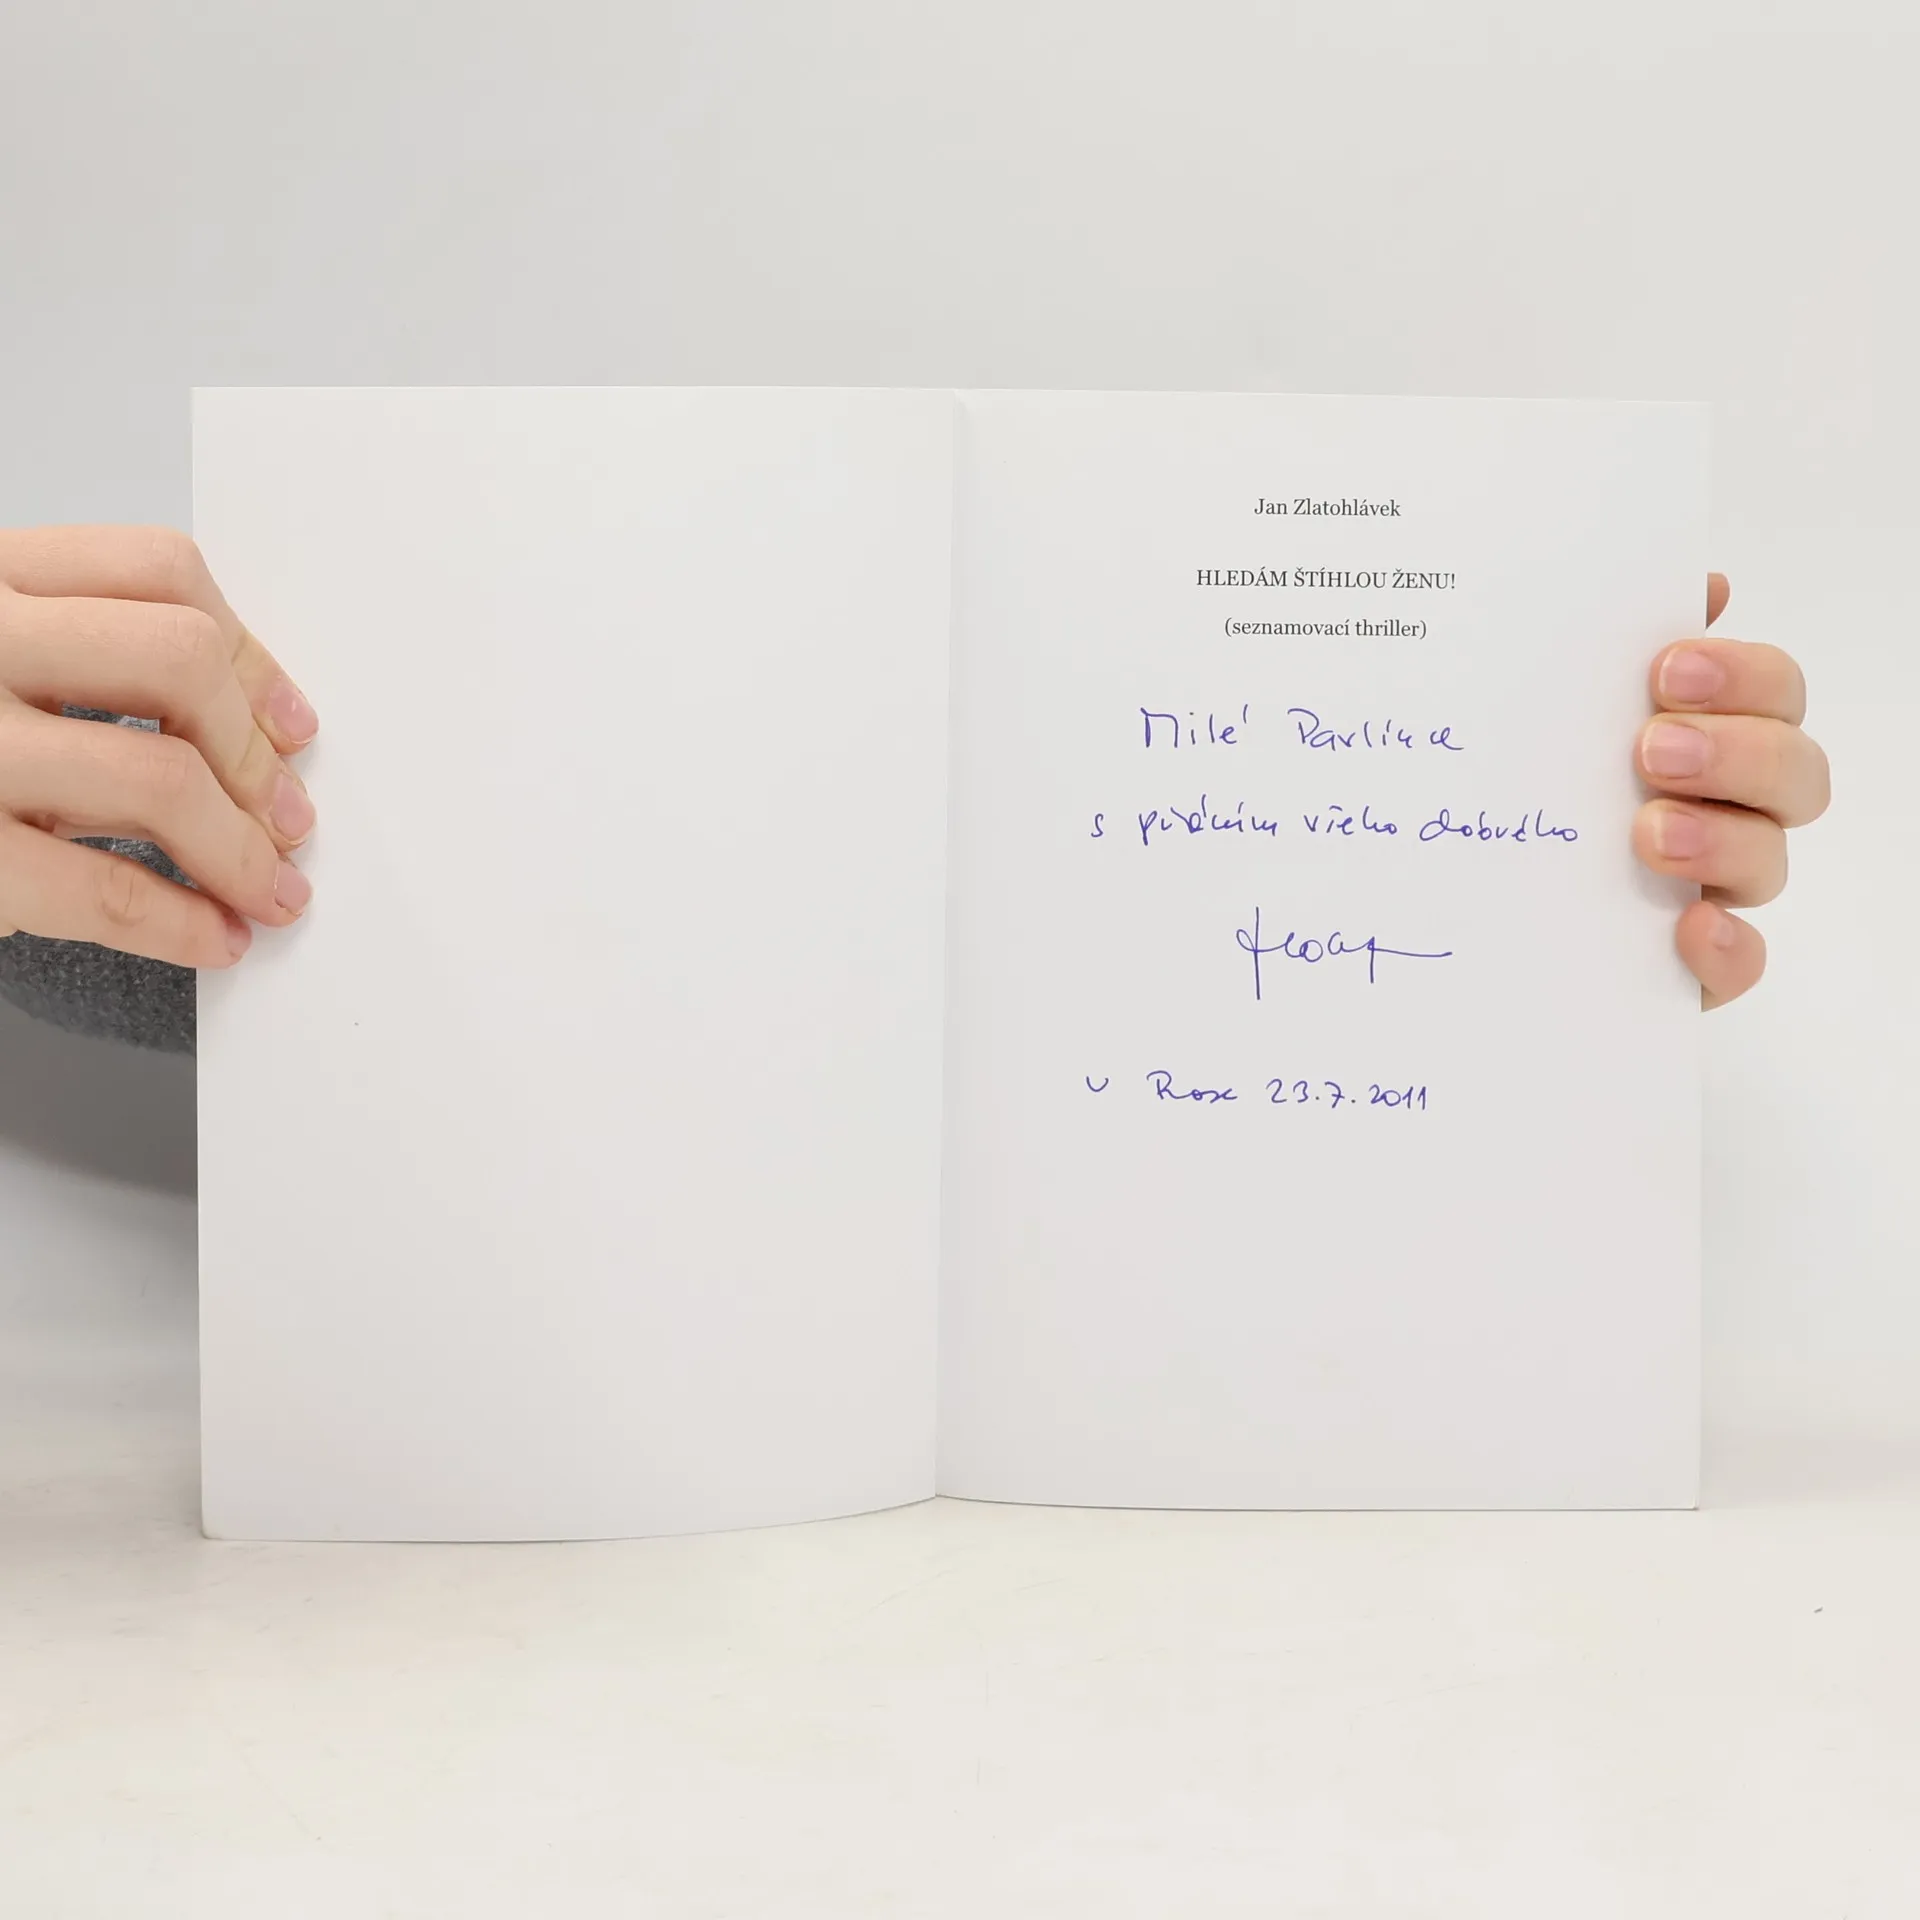 Jan Zlatohlávek
HLEDÁM ŠTÍHLOU ŽENU!
(seznamovací thriller)
Milé Pavlínce
s přáním všeho dobrého
v 23.7.2011